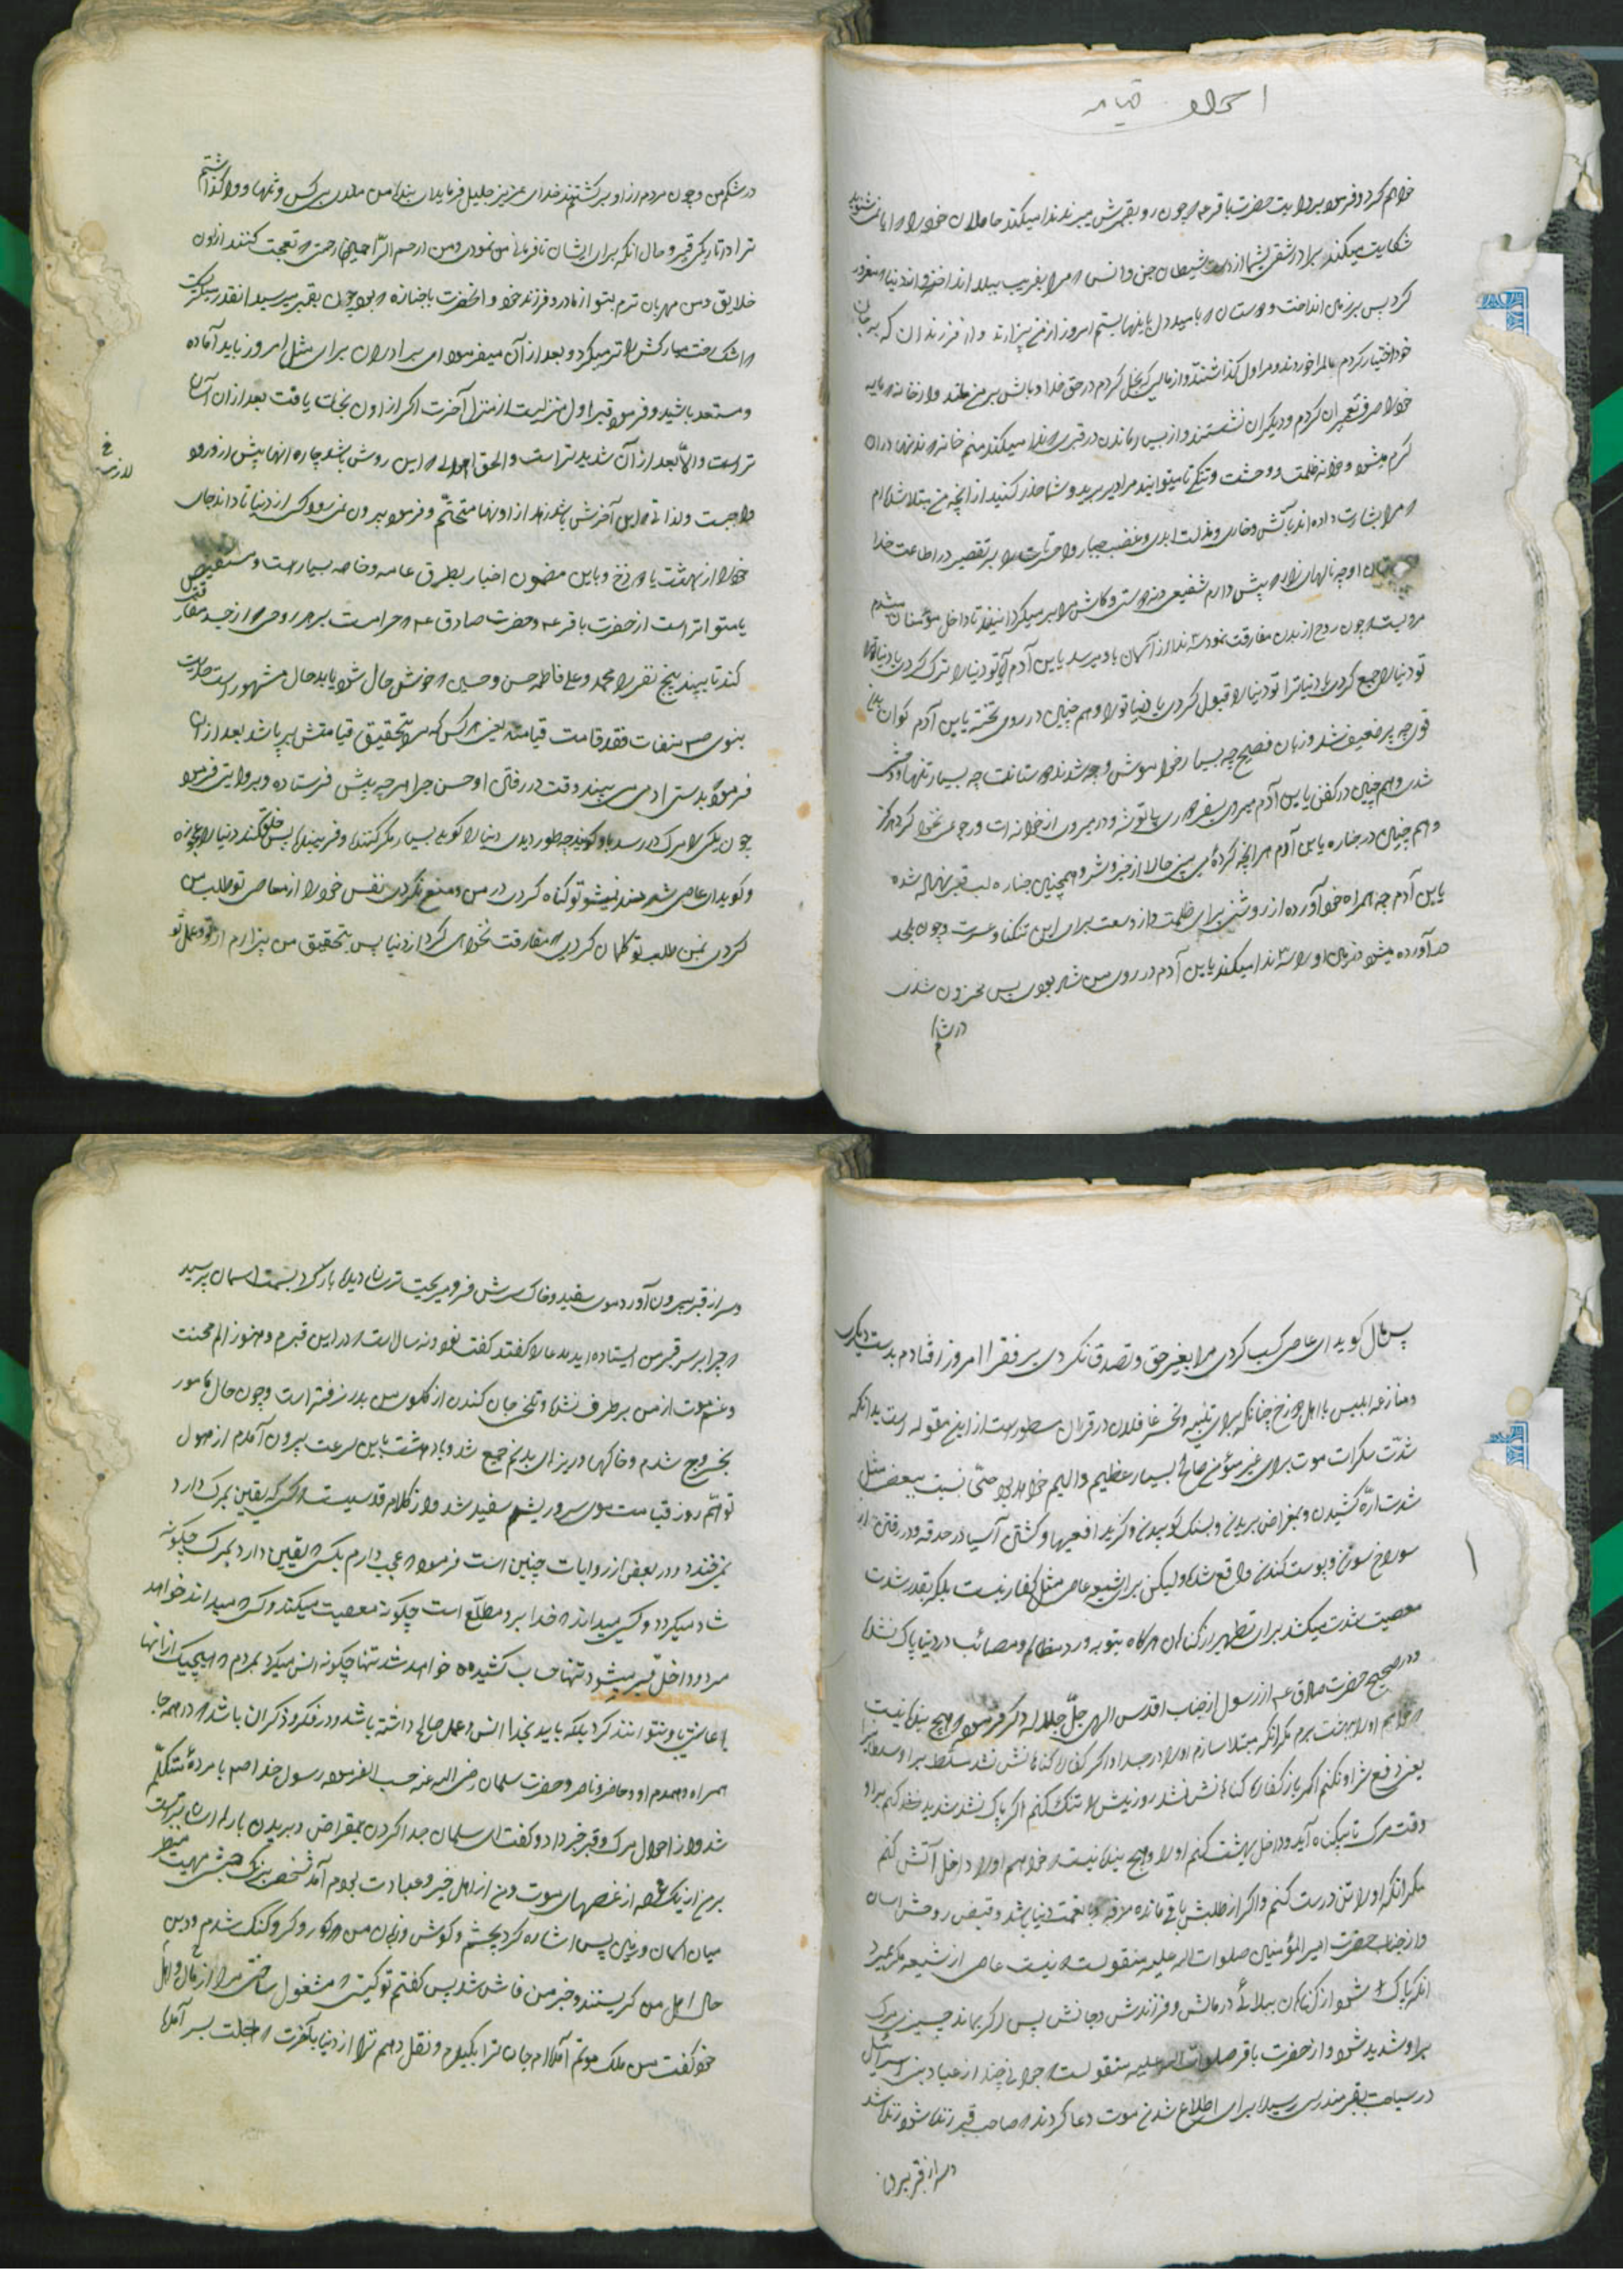 احوال قیامت
خواهم کرد و فرمود بروایت حضرت باقر ع چون رو بقبرش میبرند ندا میکند حاملان خود را ایا نمیشنوید
شکایت میکنم برادر شقی بشما از دست شیطان جن و انس مرا بفریب ببلا انداختند و دنیا مغرور
کرد پس بر زمین انداخت و دوستان با میل دل باینها بستم امروز از من بیزارند و از فرزندان که بر جان
خود اختیار کردم مالم را خوردند و مرا ول گذاشتند و از مالیکه بخل کردم در حق خدا و بالش بر من ماند و از خانه مایه
خود را صرف تعمیر آن کردم و دیگران نشستند و از بسیار ماندن در قبر ندا میکند منم خانه
کرم میشود و خانه ظلمت و وحشت و تنگی تا میتوانید مرا دیر برید و شما حذر کنید از آنچه من مبتلا شده‌ام
مرا بشارت داده اند بآتش و خاری و مذلت ابدی و غضب جبار وا حسرتا بر تقصیر در اطاعت خدا
و چه نالهای زار در پیش دارم شفیعی نه دوستی و کاش مرا بر میگردانیدند تا داخل مؤمنان میشدم
مرویست چون روح از بدن مفارقت نمود ندا از آسمان باو میرسد یابن آدم آیا تو دنیا را ترک کردی یا دنیا ترا
تو دنیا را جمع کردی یا دنیا ترا تو دنیا را قبول کردی یا دنیا تو را و هم چنین در روی تخته یابن آدم کو آن بدن
قوی چه پر ضعیف شد و زبان فصیح چه بسیار خواموش و چه شدند دوستانت چه بسیار تنها و وحشی
شدی و هم چنین در کفن یابن آدم میروی بسفر دوری بلا توشه و در میروی از خانه ات و رجوع نخواهی کرد هرگز
و هم چنین در جنازه یابن آدم هر آنچه کردهٔ می بینی حالا از خیر و شر و همچنین جنازه لب قبر نهاده شده
یابن آدم چه همراه خود آوردهٔ از روشنی برای ظلمت و از وسعت برای این تنگنا و عسرت و چون بلحد
درآورده میشود زمین او را ندا میکند یابن آدم در روی من شاد بودی پس محزون شدی
در شکم
در شکم من و چون مردم از او برگشتند خدای عزیز جلیل فرماید ای بنده من ماندی بی کس و تنها و واگذاشتم
ترا در تاریکی قبر و حال آنکه برای ایشان نافرمانی من نمودی و من ارحم الرّاحمین رحمت تعجب کنند از اون
خلایق و من مهربان ترم بتو از مادر و فرزند خود و آنحضرت با جنازه بود چون بقبر میرسید آنقدر میگریست
اشک رخت مبارکش تر میکرد و بعد از آن میفرمود ای برادران برای مثل امروز باید آماده
و مستعد باشید و فرمود قبر اول منزلیست از منزل آخرت اگر از اون نجات یافت بعد از آن آسان
تر است و الّا بعد از آن شدید تر است و الحق اولی این روش باشد چاره آنها پیش از ورود
لازم خ
واجبست و لذا نی این آخرش باشد زهد از اولها متحتّم و فرمود بیرون نمیرود کسی از دنیا تا داند جای
خود را از بهشت یا دوزخ و باین مضمون اخبار بطرق عامه و خاصه بسیار است و مستفیض
یا متواتر است از حضرت باقر ع و حضرت صادق ع حرامست بر هر روحی از جسد مفارقت
کند تا ببیند پنج نفر را محمد و علی فاطمه حسن و حسین خوش حال شود یا بدحال مشهور است حدیث
نبوی ص من مات فقد قامت قیامته یعنی کس که مرد بتحقیق قیامتش برپا شد بعد از آن
فرمود بدرستی آدمی می بیند وقت در رفتن او حسن جزا هر چه پیش فرستاده و بروایتی فرمود
چون یکی را مرگ در رسد باو گویند چه طور دیدی دنیا را گوید بسیار مکر کننده و فریبنده پس خلق کند دنیا را بچهره
و گوید ای عاصی شرمنده نمیشوی تو گناه کردی در من و منع نکردی نفس خود را از معاصی تو طلب من
کردی نه من طلب تو گمان کردی مفارقت نخواهی کرد از دنیا پس بتحقیق من بیزارم از تو و عمل تو
پس مال گوید ای عاصی کسب کردی مرا بغیر حق و تصدق نکردی بر فقرا امروز افتادم بدست دیگری
و منازعه ابلیس با اهل دوزخ چنانکه برای تنبیه و تحسر غافلان در قران مسطور است از این مقوله است بدانکه
شدّت سکرات موت برای غیر مؤمن صالح بسیار عظیم و الیم خواهد بود حتّی نسبت ببعض مثل
شدت ارّه کشیدن و بمقراض بریدن و بسنگ کوبیدن و گزیدن افعیها و گشتن آسیا در حدقه و در رفتن از
سوراخ سوزن و پوست کندن واقع شده ولیکن برای شیعه عاصی مثل کفار نیست بلکه بقدر شدت
معصیت شدت میکشد برای تطهیر از گناهان هرگاه بتوبه و رد مظالم و مصائب در دنیا پاک نشد
و در صحیح حضرت صادق ع از رسول از جناب اقدس الهی جلّ جلاله ذکر فرمود هیچ بنده نیست
خواهم او را بهشت برم مگر آنکه مبتلا سازم او را در جسد او اگر کفاره گناهانش نشد مسلط بر او سلطانیرا
یعنی دفع شر او نکنم اگر باز کفاره گناهانش نشد روزیش تنگ کنم اگر پاک نشد شدید کنم بر او
وقت مرگ تا بیگناه آید و داخل بهشت کنم او را و هیچ بنده نیست خواهم او را داخل آتش کنم
مگر آنکه او را تن درست کنم و اگر از طلبش باقی مانده مرفه و با نعمت دنیا باشد و قبض روحش آسان
و از جناب حضرت امیر المؤمنین صلوات الله علیه منقولست نیست عاصی از شیعه مگر میرد
آنکه پاک شود از گناهان ببلائی در مالش و فرزندش و جانش پس اگر بماند چیزی مرگ
بر او شدید شود و از حضرت باقر صلوات الله علیه منقولست جوانی چند از عباد بنی اسرائیل
در سیاحت بقبر مندرسی رسیده برای اطلاع شدن موت دعا کردند صاحب قبر زنده شود زنده شد
و سر از قبر بیرون
و سر از قبر بیرون آورد موی سفید و خاک سرش فرو میریخت ترسان دیده باز کرد بسمت اسمان پرسید
چرا بر سر قبر من ایستاده اید مدعا گفتند گفت نود و نه سالست در این قبرم و هنوز الم محنت
و غم موت از من برطرف نشده و تلخی جان کندن از گلوی من بدر نرفته است و چون حال مامور
بخروج شدم و خاکهای و ریزه‌ای بدنم جمع شد و با دهشت باین سرعت بیرون آمدم از هول
توهّم روز قیامت موی سر و ریشم سفید شد و از کلام قدسیست کسیکه یقین بمرگ دارد
نمیخندد و در بعض از روایات چنین است فرمود عجب دارم بکس یقین دارد بمرگ چگونه
شاد میگردد و کسی میداند خدا بر او مطلّع است چگونه معصیت میکند و کسی میداند خواهد
مرد و داخل قبر میشود تنها حساب کشیده خواهد شد تنها چگونه انس میگیرد بمردم هیچیک از آنها
باید بخدا انس و عمل صالح داشته باشد و در فکر و ذکر آن باشد در همه جا
همراه و همدم او و حاضر و ناصر و حضرت سلمان رضی الله عنه حسب الفرموده رسول خدا صم با مردهٔ متکلّم
شد و از احوال مرگ و قبر خبر داد و گفت ای سلمان جدا کردن بمقراض و بریدن باره آسانتر است
بر من از یک غصه از غصهای موت و من از اهل خیر و عبادت بودم آمد شخص بزرگ جثه مهیب منظر
میان اسمان و زمین پس اشاره کرد بچشم و گوش و زبان من کور و کر و گنگ شدم و درین
حال اهل من گریستند و خبر من فاش شد پس گفتم تو کیستی مشغول ساختی مرا از مال و اهل
خود گفت من ملک موتم آمده‌ام جان ترا بگیرم و نقل دهم ترا از دنیا بآخرت اجلت بسر آمده